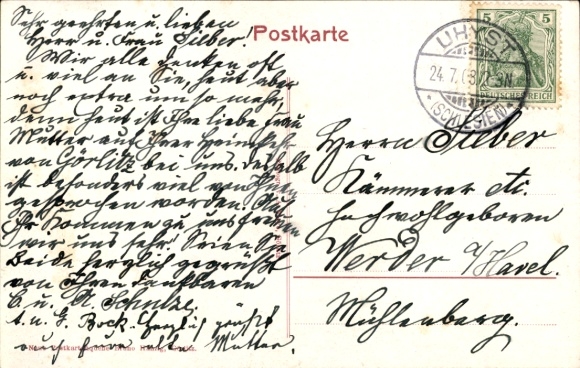 Sehr geehrten u. lieben
Herr u. Frau Silber!
Wir alle denken oft
u. viel an Sie, heut aber
noch extra um so mehr,
denn heut ist Ihre liebe Frau
Mutter auf Ihrer Heimkehr
von Görlitz bei uns. deshalb
ist besonders viel von Ihnen
gesprochen worden. Auf
Ihr Kommen zu uns freuen
wir uns sehr. Seien Sie
Beide herzlich gegrüßt
von Ihren dankbaren
B. u. A. Schulze.
t. u. G. Bock. Herzlich grüßt
auch Eure alte Mutter.
Postkarte
5 5
DEUTSCHES REICH
UHYST
24.7.
(SCHLESIEN)
Herrn Silber
Kämmerer etc.
hochwohlgeboren
Werder a/Havel.
Mühlenberg.